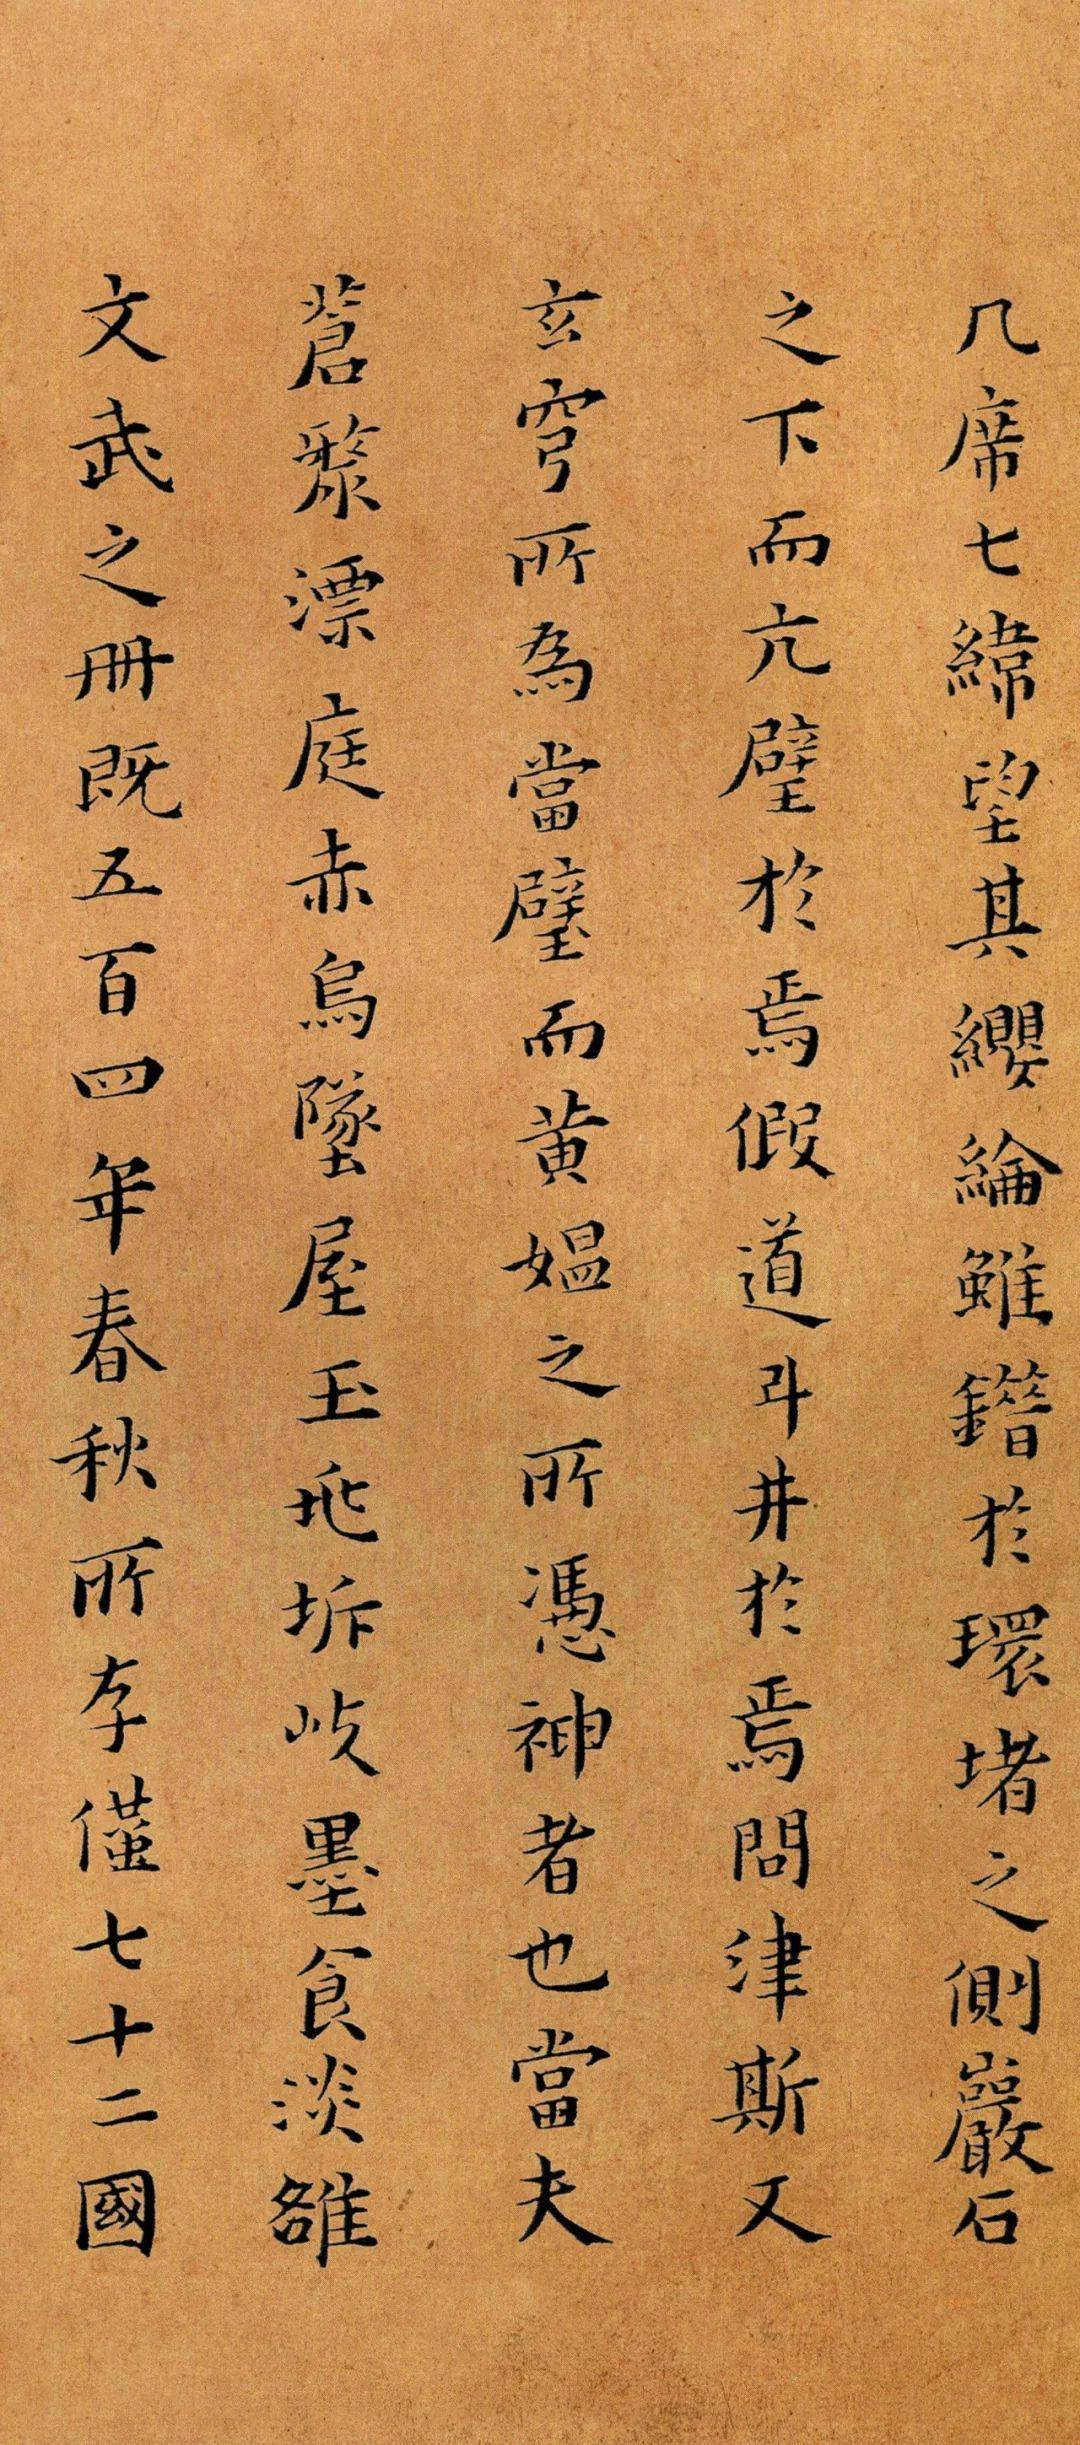 几席七緯望其纓綸雖鐕於環堵之側巖石
之下而亢璧於焉假道斗井於焉問津斯又
玄穹所為當璧而黃媪之所憑神者也當夫
蒼漦漂庭赤烏墜屋玉兆坼岐墨食淡雒
文武之冊既五百四年春秋所存僅七十二國